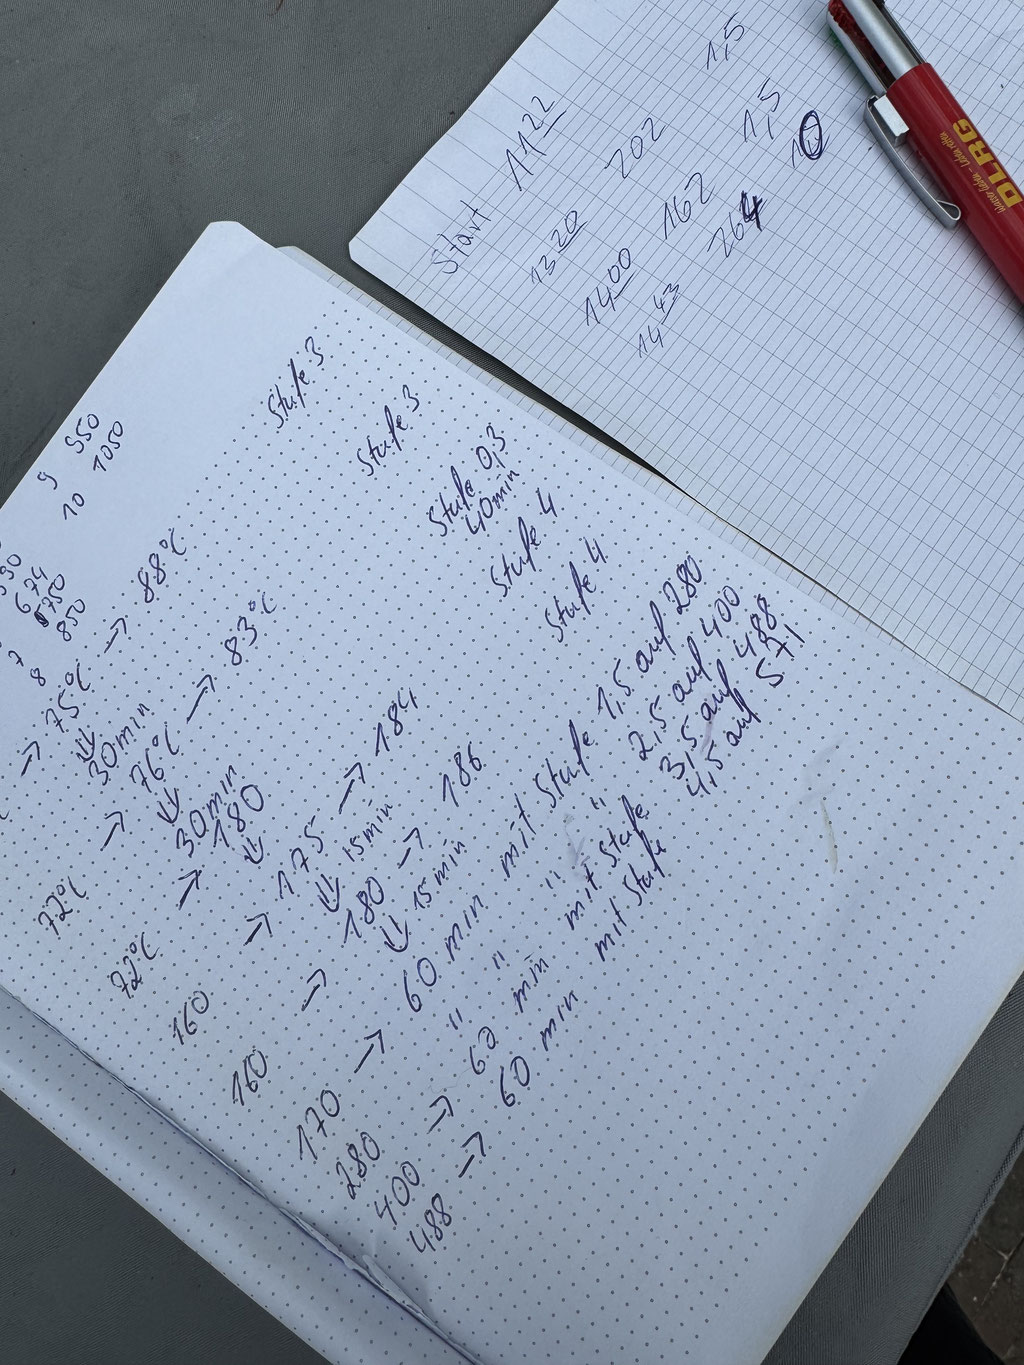 Start 11 22 1,5
13 20 202 1,5
14 00 162 10
14 43 264
DLRG
9 950
10 1050
7 674
750
8 850
72°C → 75°C → 88°C Stufe 3
⇓
30min
72°C → 76°C → 83°C Stufe 3
⇓
30min
160 → 180 Stufe 0,3
↓ 40min
160 → 175 → 184 Stufe 4
⇓ 15min
→ 180 → 186 Stufe 4
⇓ 15min
170 → 60 min mit Stufe 1,5 auf 280
280 " " " " 2,5 auf 400
400 → 60 min mit Stufe 3,5 auf 488
488 → 60 min mit Stufe 4,5 auf 571